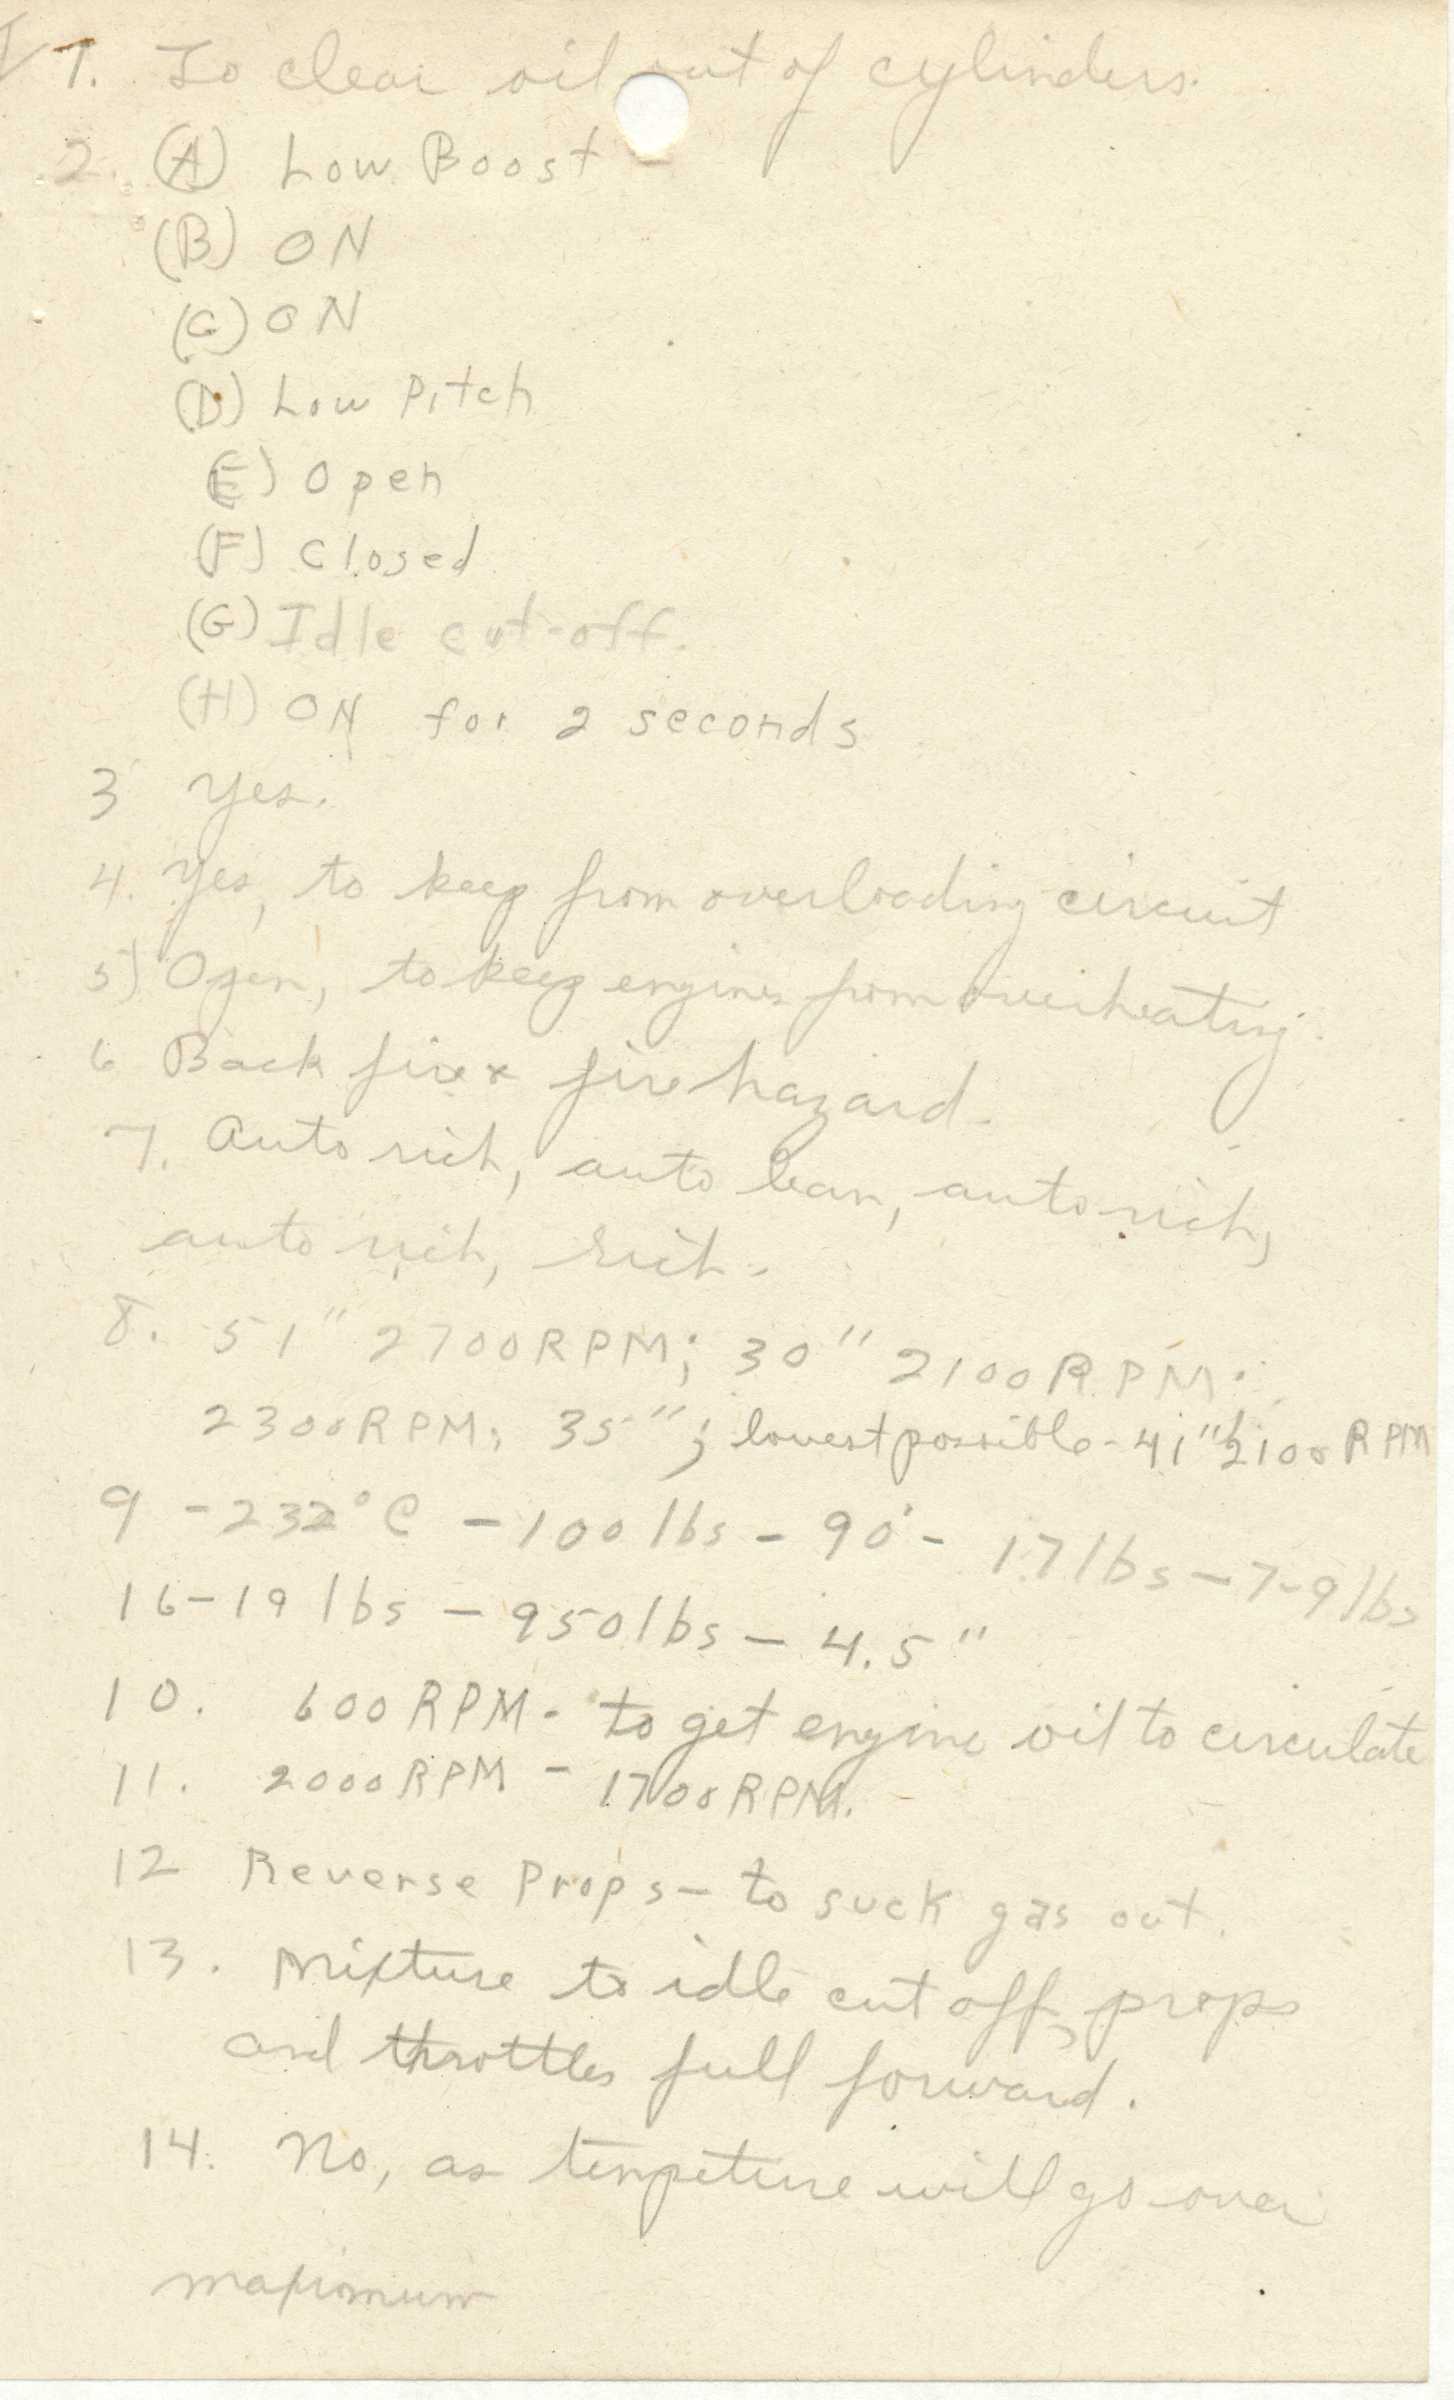 1. To clear oil out of cylinders.
2. (A) Low Boost
(B) ON
(C) ON
(D) Low Pitch
(E) Open
(F) Closed
(G) Idle cut-off.
(H) ON for 2 seconds
3 Yes.
4. Yes, to keep from overloading circuit
5) Open, to keep engines from overheating.
6 Back fire & fire hazard.
7. Auto rich, auto lean, auto rich,
auto rich, rich.
8. 51" 2700 RPM; 30" 2100 RPM;
2300 RPM; 35"; lowest possible - 41" 2100 RPM
9 - 232°C - 100 lbs - 90° - 17 lbs - 7-9 lbs
16-19 lbs - 950 lbs - 4.5"
10. 600 RPM - to get engine oil to circulate
11. 2000 RPM - 1700 RPM.
12 Reverse Props - to suck gas out.
13. Mixture to idle cut off, props
and throttles full forward.
14. No, as tempeture will go over
maxiomum